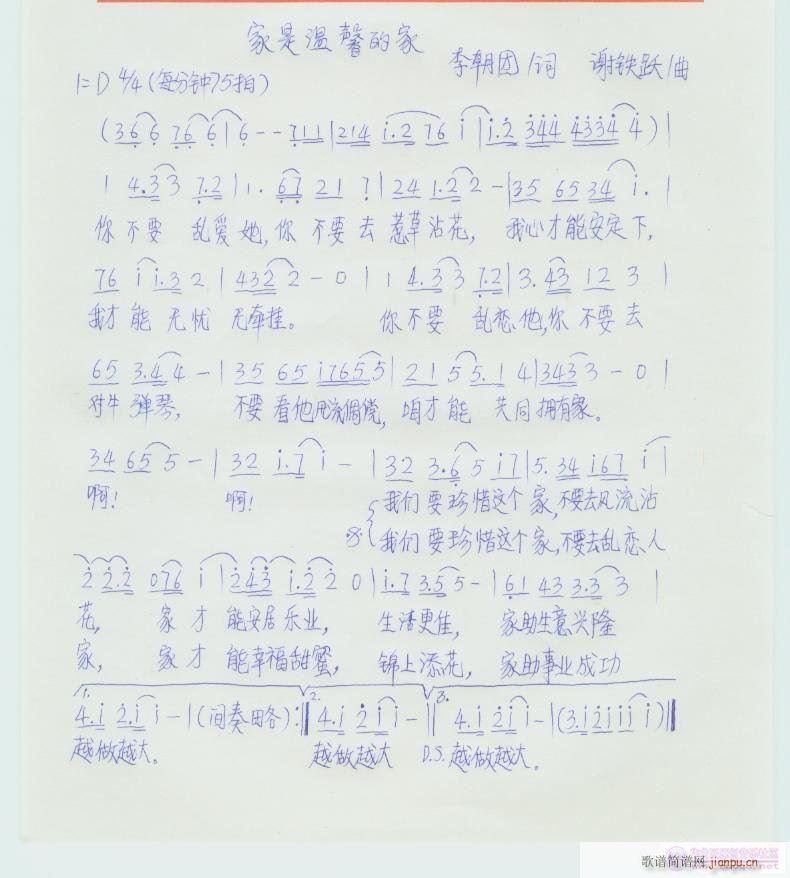 家是温馨的家
李朝团/词 谢铁跃/曲
1=D 4/4 (每分钟75拍)
(366 766|6--711|214 i.2 76 i|i.2 344 4334 4)|
1 4.33 7.2|1. 67 21 7|24 1.22-|35 65 34 i.|
你不要 乱爱她,你 不要去 惹草沾花, 我心才能安定下,
76 i i.3 2|4322-0|1 4.33 7.2|3. 43 12 3|
我才能 无忧 无牵挂。 你不要 乱恋他,你不要去
65 3.44-|35 65 i7655|21 55.1 4|3433-0|
对牛 弹琴, 不要看他 倜傥, 咱才能 共同拥有家。
34 655-|32 i.7i-|32 3.65 i7|5. 34 i67 i|
啊! 啊! 我们要珍惜这个家,不要去风流沾
我们要珍惜这个家,不要去乱恋人
2 2.2 076 i|243 i.22 0|i.7 3.55-|61 43 3.33|
花, 家才能安居乐业, 生活更佳, 家助生意兴隆
家, 家才能幸福甜蜜, 锦上添花, 家助事业成功
1. 2. 3.
4.i 2.ii-|(间奏略):‖4.i 2ii-‖4.i 2ii-|(3.i2iiii)‖
越做越大。 越做越大 D.S. 越做越大。
歌谱简谱网 jianpu.cn